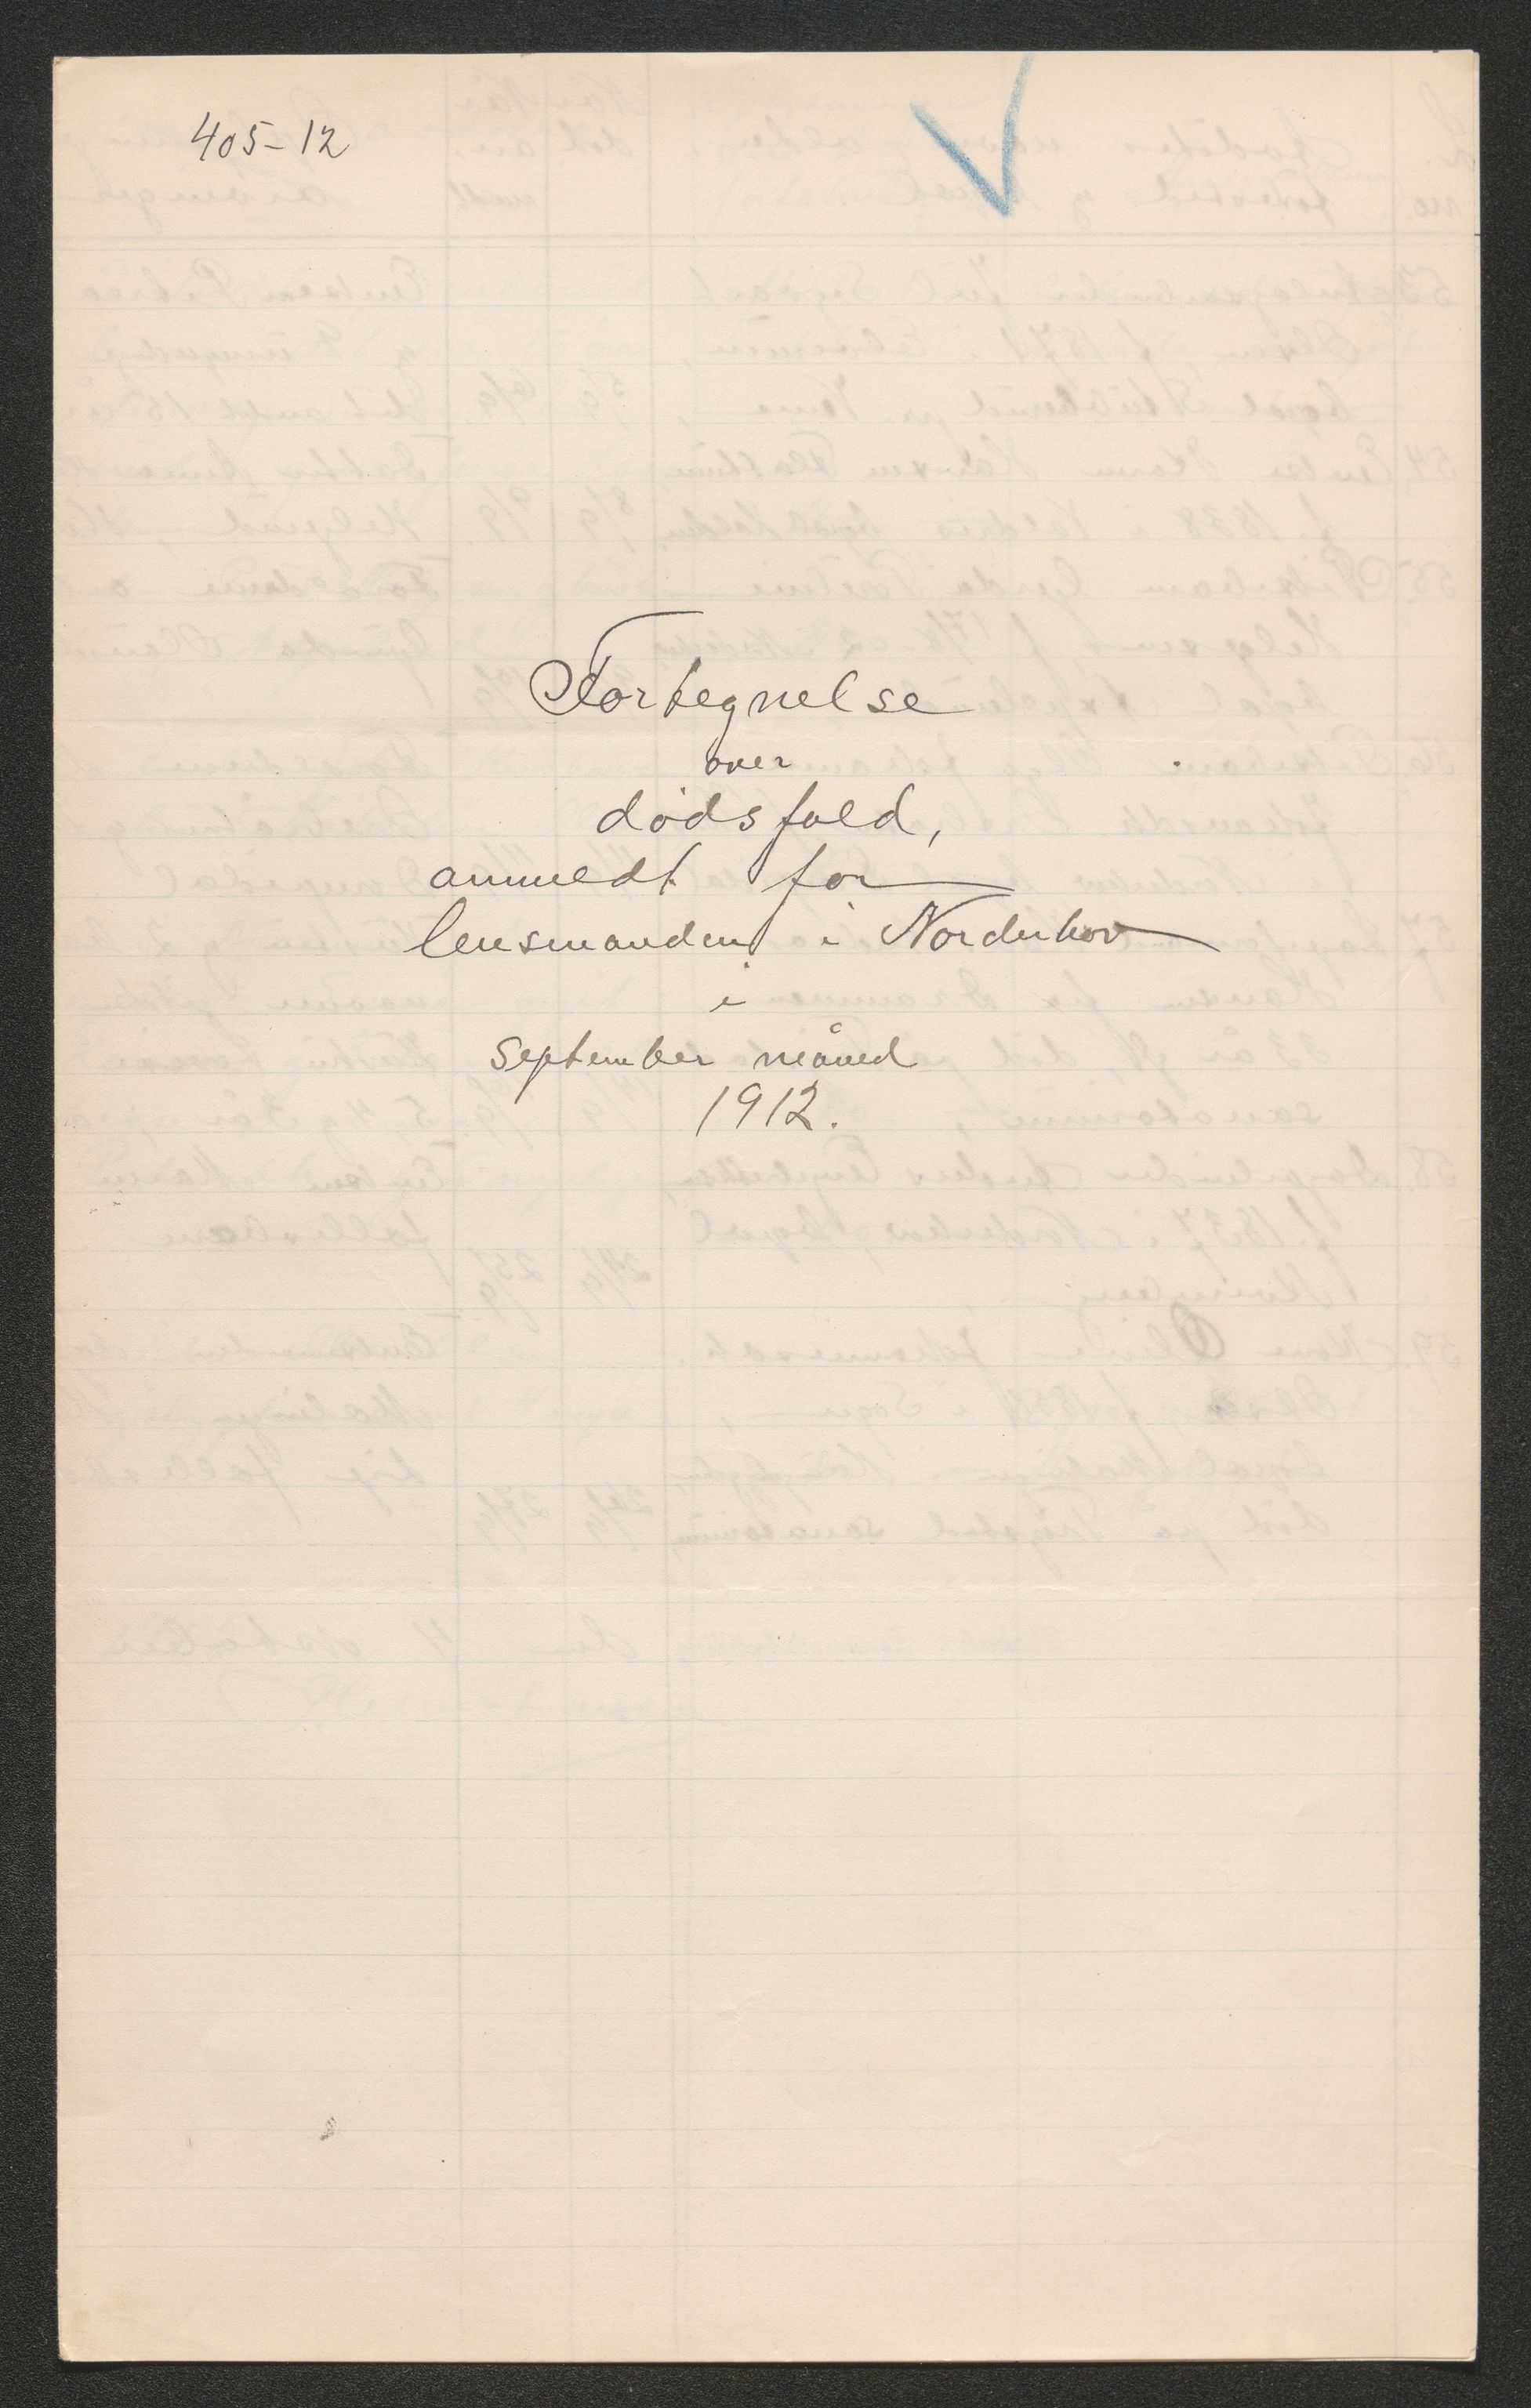 405-12
Fortegnelse
over
dødsfald,
anmeldt for
lensmanden i Norderhov
i
september måned
1912.